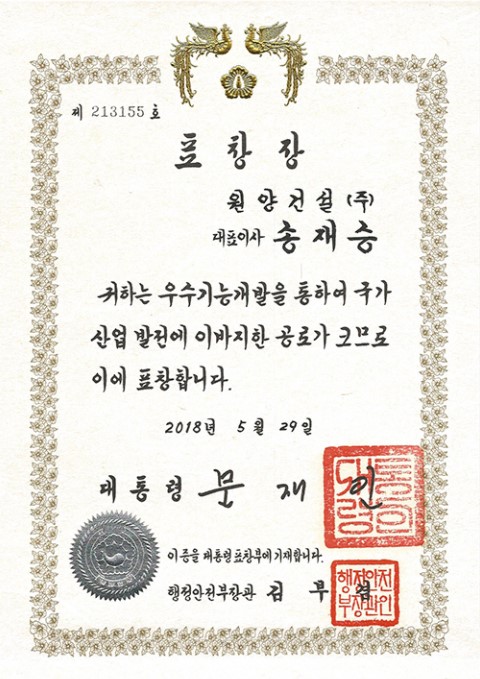 제 213155 호
표 창 장
원 양 건 설 (주)
대표이사 송 재 승
귀하는 우수기능개발을 통하여 국가
산업 발전에 이바지한 공로가 크므로
이에 표창합니다.
2018년 5월 29일
대 통 령 문 재 인
대통령의인
이 증을 대통령 표창부에 기재합니다.
행정안전부장관 김 부 겸
행정안전부장관인